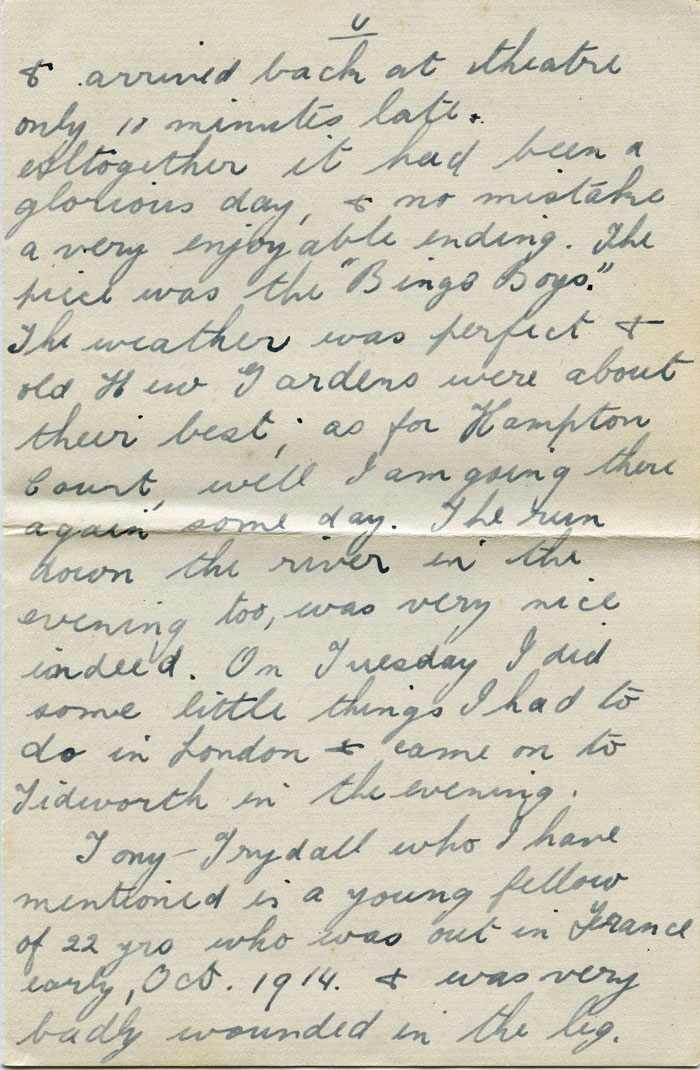 & arrived back at theatre
only 10 minutes late.
Altogether it had been a
glorious day, & no mistake
a very enjoyable ending. The
piece was the "Bingo Boys."
The weather was perfect &
old Kew Gardens were about
their best; as for Hampton
Court, well I am going there
again some day. The run
down the river in the
evening too, was very nice
indeed. On Tuesday I did
some little things I had to
do in London & came on to
Tidworth in the evening.
Tony-Trydall who I have
mentioned is a young fellow
of 22 yrs who was out in France
early, Oct. 1914. & was very
badly wounded in the leg.